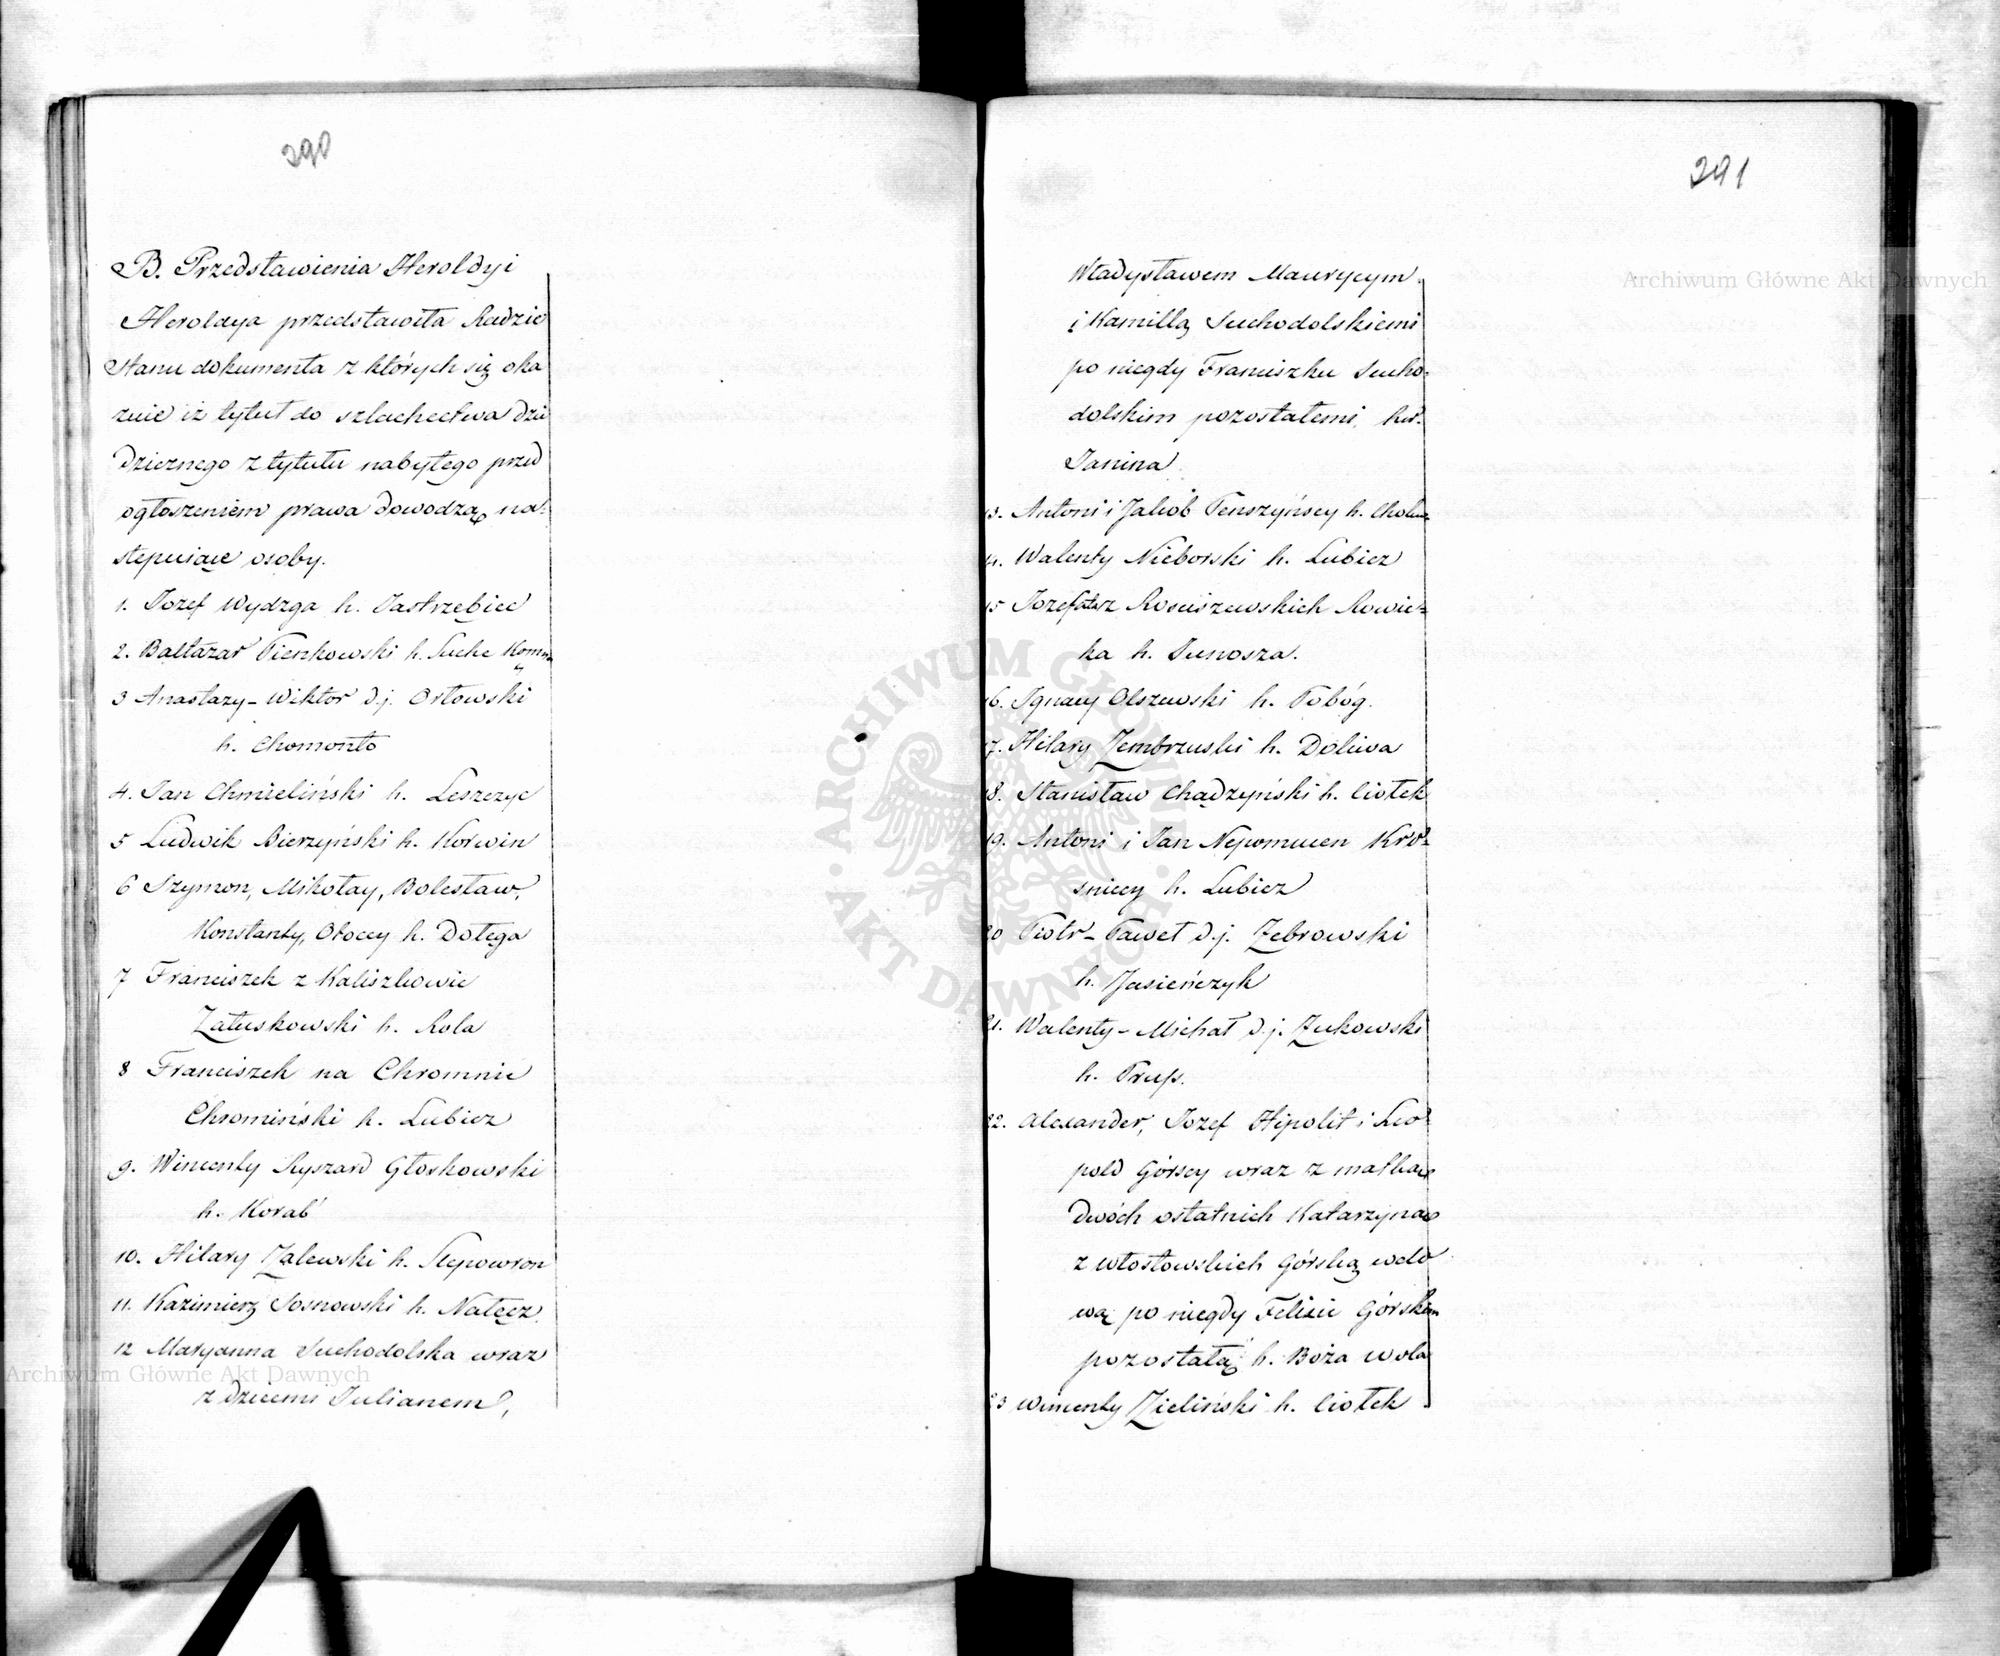 290
B. Przedstawienia Heroldyi
Heroldya przedstawiła Radzie
Stanu dokumenta z których się oka
zuie iż tytuł do szlachectwa dzie
dzicznego z tytułu nabytego przed
ogłoszeniem prawa dowodzą na-
stępuiące osoby.
1. Jozef Wydzga h. Jastrzębiec
2. Baltazar Pienkowski h. Suche Komn
ty
3 Anastazy - Wiktor d.j. Orłowski
h. Chomonto
4. Jan Chmieliński h. Leszczyc
5 Ludwik Bierzyński h. Korwin
6 Szymon, Mikołay, Bolesław,
Konstanty, Otoccy h. Dołęga
7 Franciszek z Kaliszkowic
Załuskowski h. Rola
8 Franciszek na Chromnie
Chromiński h. Lubicz
9. Wincenty Ryszard Głoskowski
h. Korab
10. Hilary Zalewski h. Slepowron
11. Kazimierz Sosnowski h. Nałęcz
12 Maryanna Suchodolska wraz
z dziecmi Julianem,
291
Władysławem Maurycym
i Kamillą Suchodolskiemi
po niegdy Franciszku Sucho-
dolskim pozostałemi, her.
Janina
13. Antoni i Jakób Tenszyńscy h. Cholewa
14. Walenty Nieborski h. Lubicz
15 Jozefata z Rosciszewskich Rowic-
ka h. Junosza.
16. Ignacy Olszewski h. Pobóg.
17. Hilary Zembrzuski h. Doliwa
18. Stanisław Chądzyński h. Ciołek
19. Antoni i Jan Nepomucen Kro-
sniccy h. Lubicz
20 Piotr - Paweł d.j. Zebrowski
h. Jasieńczyk
21. Walenty - Michał d.j. Zukowski
h. Prus.
22. Alexander, Jozef Hipolit i Leo-
pold Górscy wraz z matką
dwóch ostatnich Katarzyną
z Włostowskich Górską wdo
wą po niegdy Felixie Górskim
pozostałą h. Boża wola
23 Wincenty Zieliński h. Ciołek
Archiwum Główne Akt Dawnych
Archiwum Główne Akt Dawnych
ARCHIWUM GŁÓWNE · AKT DAWNYCH ·